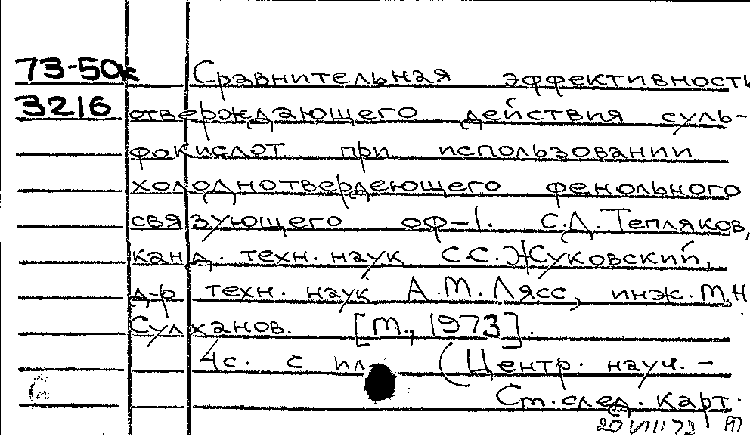 73-50к Сравнительная эффективность
3216 отверждающего действия суль-
фокислот при использовании
холоднотвердеющего фенольного
связующего ОФ-1. С.Д. Тепляков,
канд. техн. наук С.С. Жуковский,
д-р техн. наук А.М. Лясс, инж. М.Н.
Сулханов. [М., 1973].
4с. с ил (Центр. науч.-
Ст. след. карт.
20 VIII 73